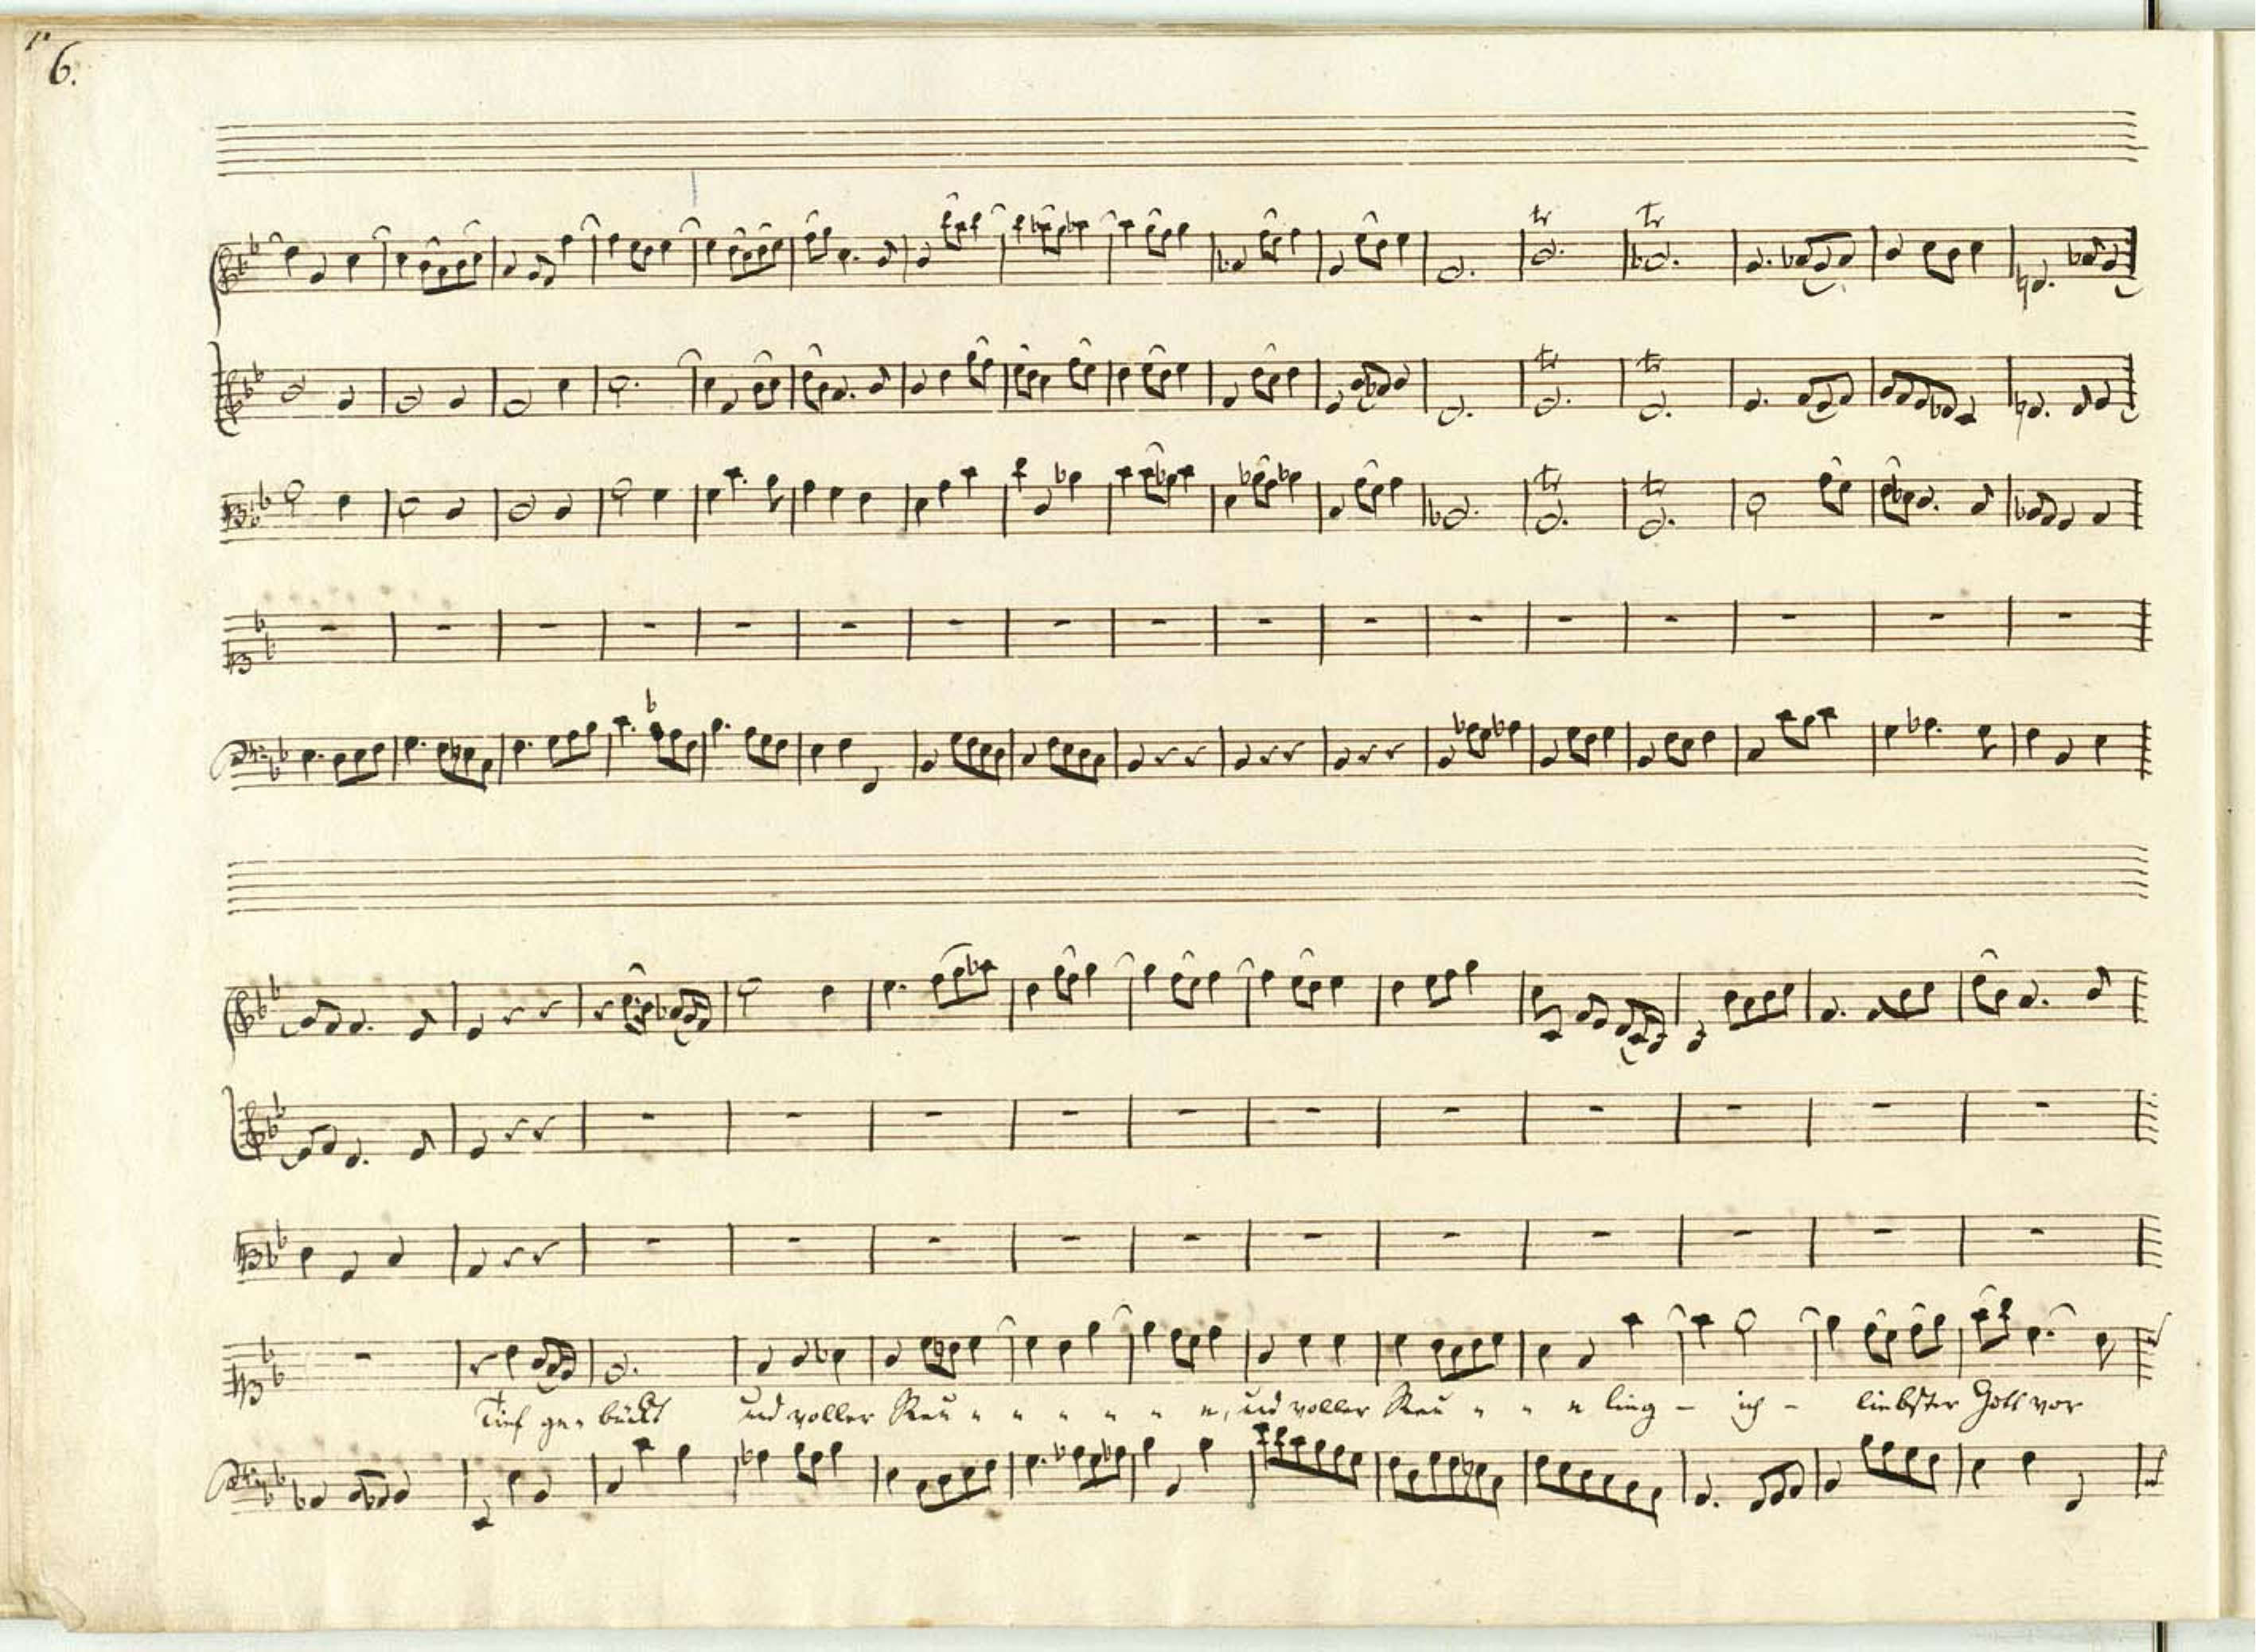 6.
tr tr
tr tr
tr tr
Tief ge- bückt und voller Reu - - - - - e, und voller Reu - - e lieg - ich - liebster Gott vor